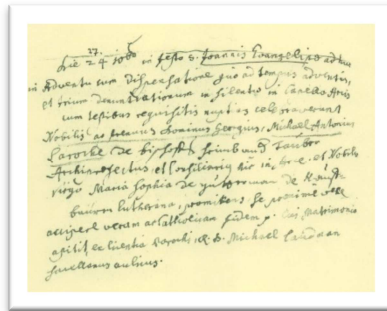 27.
Die 24 10bris in festo S. Joannis Evangelistæ adhuc
in Adventu cum dispensatione quo ad tempus adventus,
et trium denuntiationum in silentio in Capella Arcis
cum testibus requisitis nuptias celebraverunt
Nobilis ac Dominus Georgius, Michael Antonius
Larocke de Bischoffsheim Tauber
Architectus, et Consiliarius hic in et Nobilis
virgo Maria Sophia de
Lutherana, promittens se proxime
accipere veram ac Catholicam fidem. Cui Matrimonio
astitit, ex licentia Parochi, R. D. Michael Landman
Sacellanus aulicus.